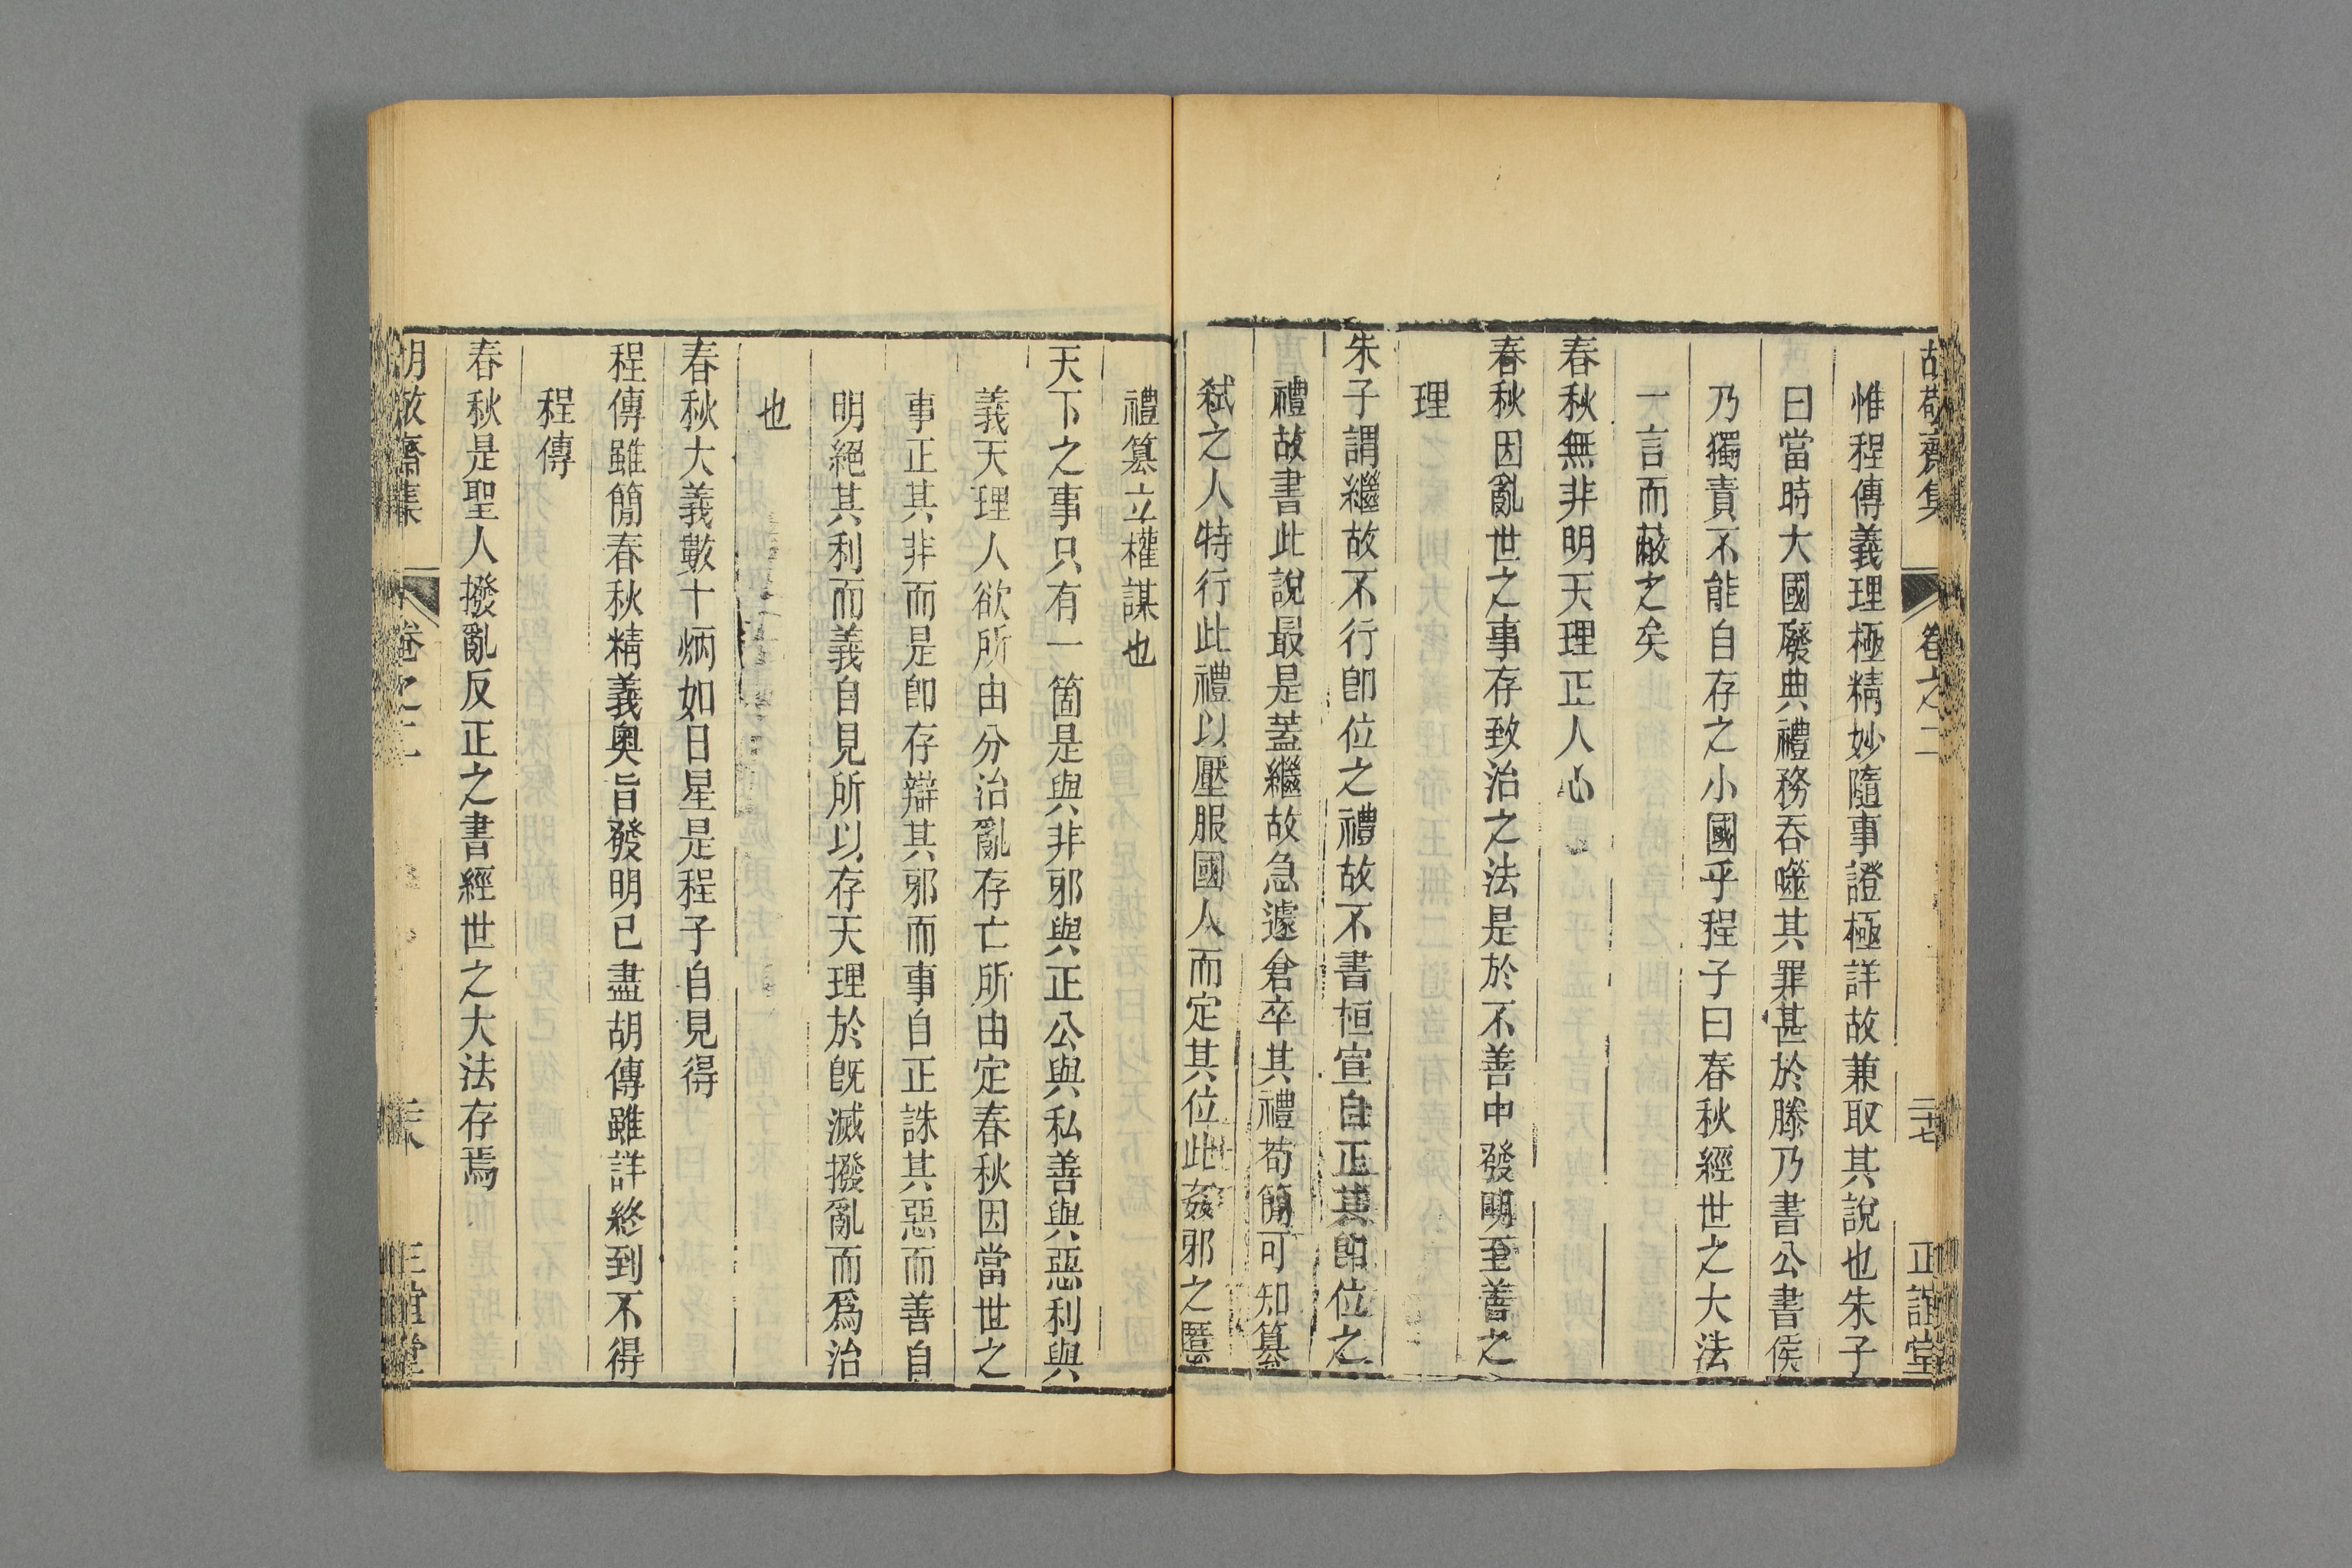 胡敬齋集 卷之二 二十七 正誼堂
惟程傳義理極精妙隨事證極詳故兼取其說也朱子
曰當時大國廢典禮務吞噬其罪甚於滕乃書公書侯
乃獨責不能自存之小國乎程子曰春秋經世之大法
一言而蔽之矣
春秋無非明天理正人心
春秋因亂世之事存致治之法是於不善中發明至善之
理
朱子謂繼故不行卽位之禮故不書恒宣自正其卽位之
禮故書此說最是蓋繼故急遽倉卒其禮苟簡可知篡
弑之人特行此禮以壓服國人而定其位此姦邪之慝
禮篡立權謀也
天下之事只有一箇是與非邪與正公與私善與惡利與
義天理人欲所由分治亂存亡所由定春秋因當世之
事正其非而是卽存辯其邪而事自正誅其惡而善自
明絕其利而義自見所以存天理於旣滅撥亂而爲治
也
春秋大義數十炳如日星是程子自見得
程傳雖簡春秋精義奧旨發明已盡胡傳雖詳終到不得
程傳
春秋是聖人撥亂反正之書經世之大法存焉
胡敬齋集 卷之二 二十八 正誼堂